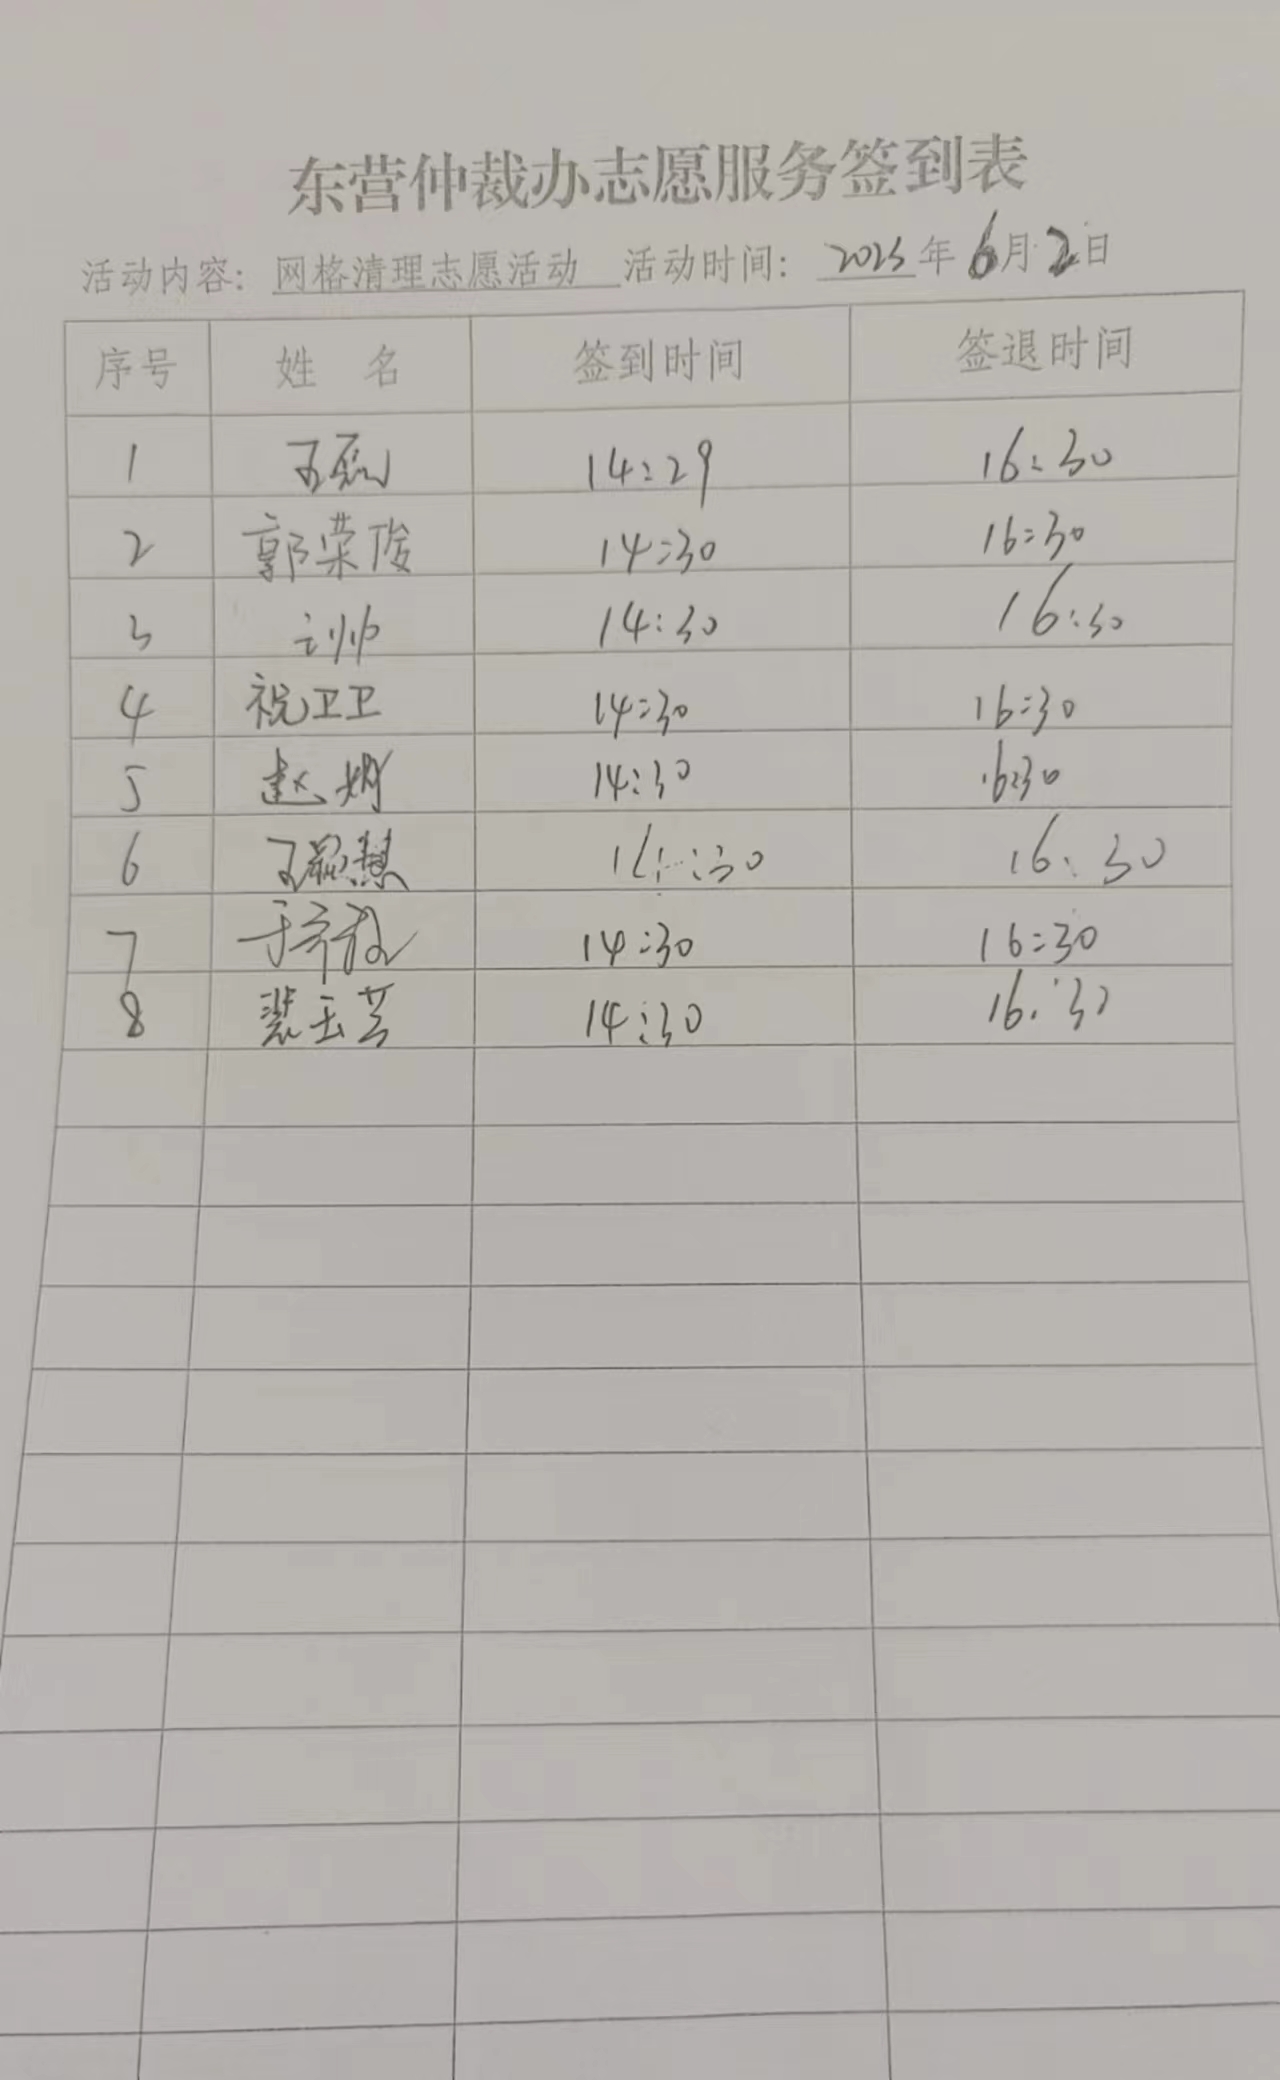 东营仲裁办志愿服务签到表
活动内容: 网格清理志愿活动 活动时间: 2025年6月2日
序号 姓 名 签到时间 签退时间
1 王磊 14:29 16:30
2 郭荣俊 14:30 16:30
3 14:30 16:30
4 祝卫卫 14:30 16:30
5 赵娟 14:30 16:30
6 王显慧 14:30 16:30
7 14:30 16:30
8 裴玉芸 14:30 16:30